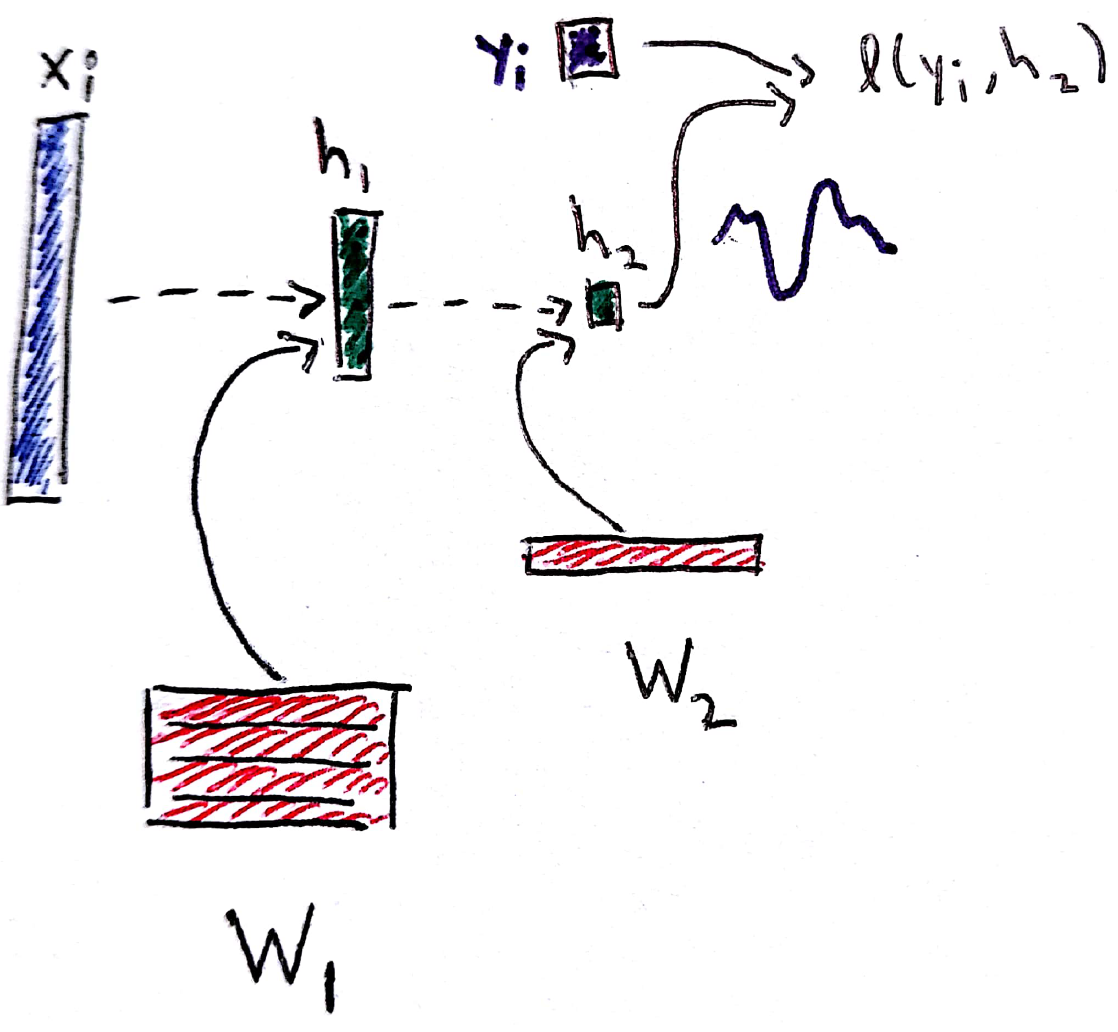 xᵢ
yᵢ
l(yᵢ, h₂)
h₁
h₂
W₂
W₁